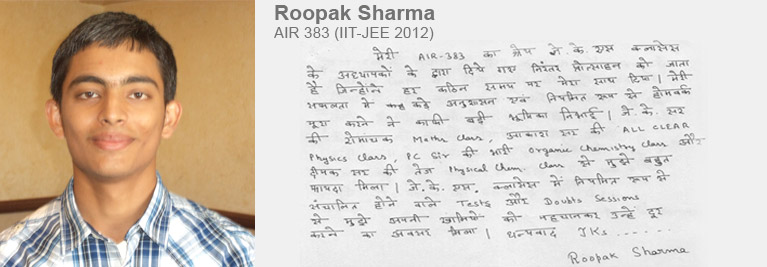 Roopak Sharma
AIR 383 (IIT-JEE 2012)
मेरी AIR-383 का श्रेय जे. के. एस क्लासेस
के अध्यापकों के द्वारा दिये गए निरंतर प्रोत्साहन को जाता
है जिन्होंने हर कठिन समय पर मेरा साथ दिया। मेरी
सफलता में कड़े अनुशासन एवं नियमित रूप से होमवर्क
पूरा करने ने काफी बड़ी भूमिका निभाई। जे. के. सर
की रोमांचक Maths Class, आकाश सर की ALL CLEAR
Physics Class, PC Sir की भारी Organic Chemistry Class और
दीपक सर की तेज Physical Chem. Class से मुझे बहुत
फायदा मिला। जे. के. एस. क्लासेस में नियमित रूप से
संचालित होने वाले Tests और Doubts Sessions
से मुझे अपनी खामियों को पहचानकर उन्हें दूर
करने का अवसर मिला। धन्यवाद JKs......
Roopak Sharma